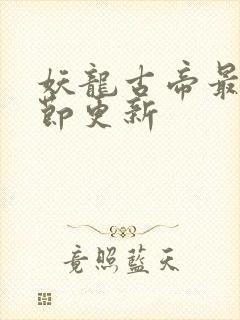 妖龍古帝最
節更新
竟照藍天